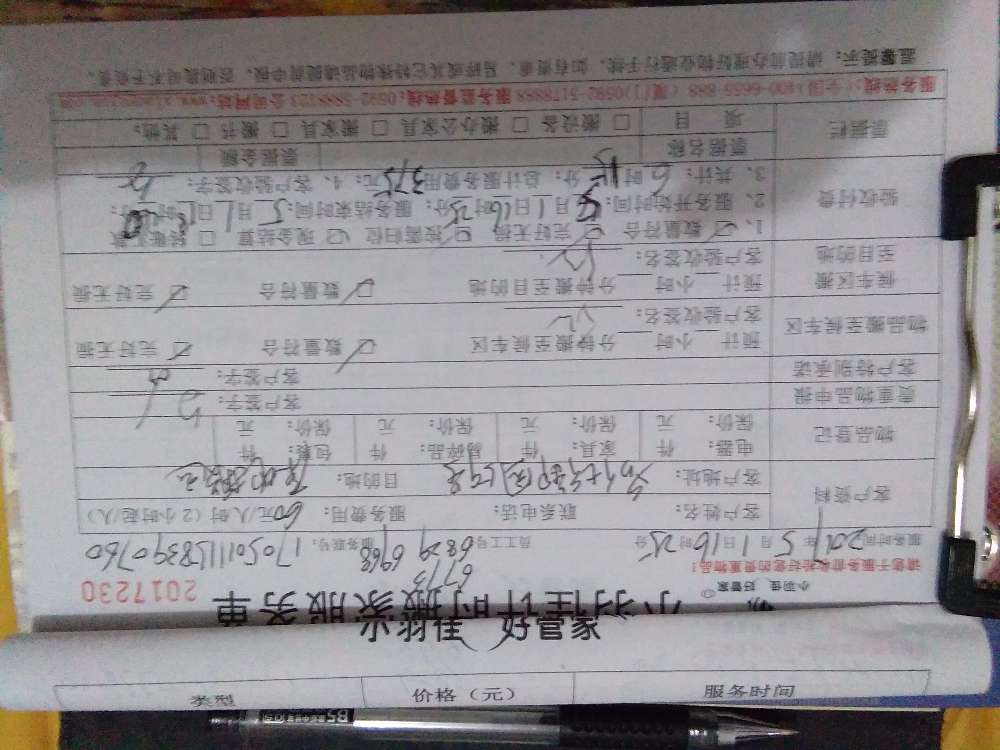 小羽佳 好管家
类型 价格（元） 服务时间
小羽佳计时搬家服务单
小羽佳，好管家 2017230
请您于服务前收拾好您的贵重物品！
6773
服务时间 2017年5月1日16时25分 员工工号 6829 6968 服务账号：1705011158390760
客户资料 客户姓名： 联系电话： 服务费用：60元/人/时（2小时起/人）
客户地址： 目的地：
物品登记 电器： 件 家具： 件 易碎品： 件 包裹： 件
保价： 元 保价： 元 保价： 元 保价： 元
贵重物品申报 客户签字：
客户特别承诺 客户签字：
物品搬至候车区 预计 小时 分钟搬至候车区 数量符合 完好无损
客户验收签名：
候车区搬至目的地 预计 小时 分钟搬至目的地 数量符合 完好无损
客户验收签名：
验收付费 1、数量符合 完好无损 按需归位 现金结算 转账付款
2、服务开始时间：5月1日16时25分；服务结束时间：5月1日 时 分；
3、共计：6时15分；总计服务费用375元；4、客户验收签字：
票据栏 票据名称 票据金额
项目 搬设备 搬办公家具 搬家具 搬书 其他：
服务热线：（全国）400-6655-888（厦门）0592-5178888 服务监督热线：0592-5888123 公司网站：www.xiaoyujia.com
温馨提示：请提前办理好物业通行手续，如有贵重、易碎或其它特殊物品请提前申报，否则损坏不予负责。